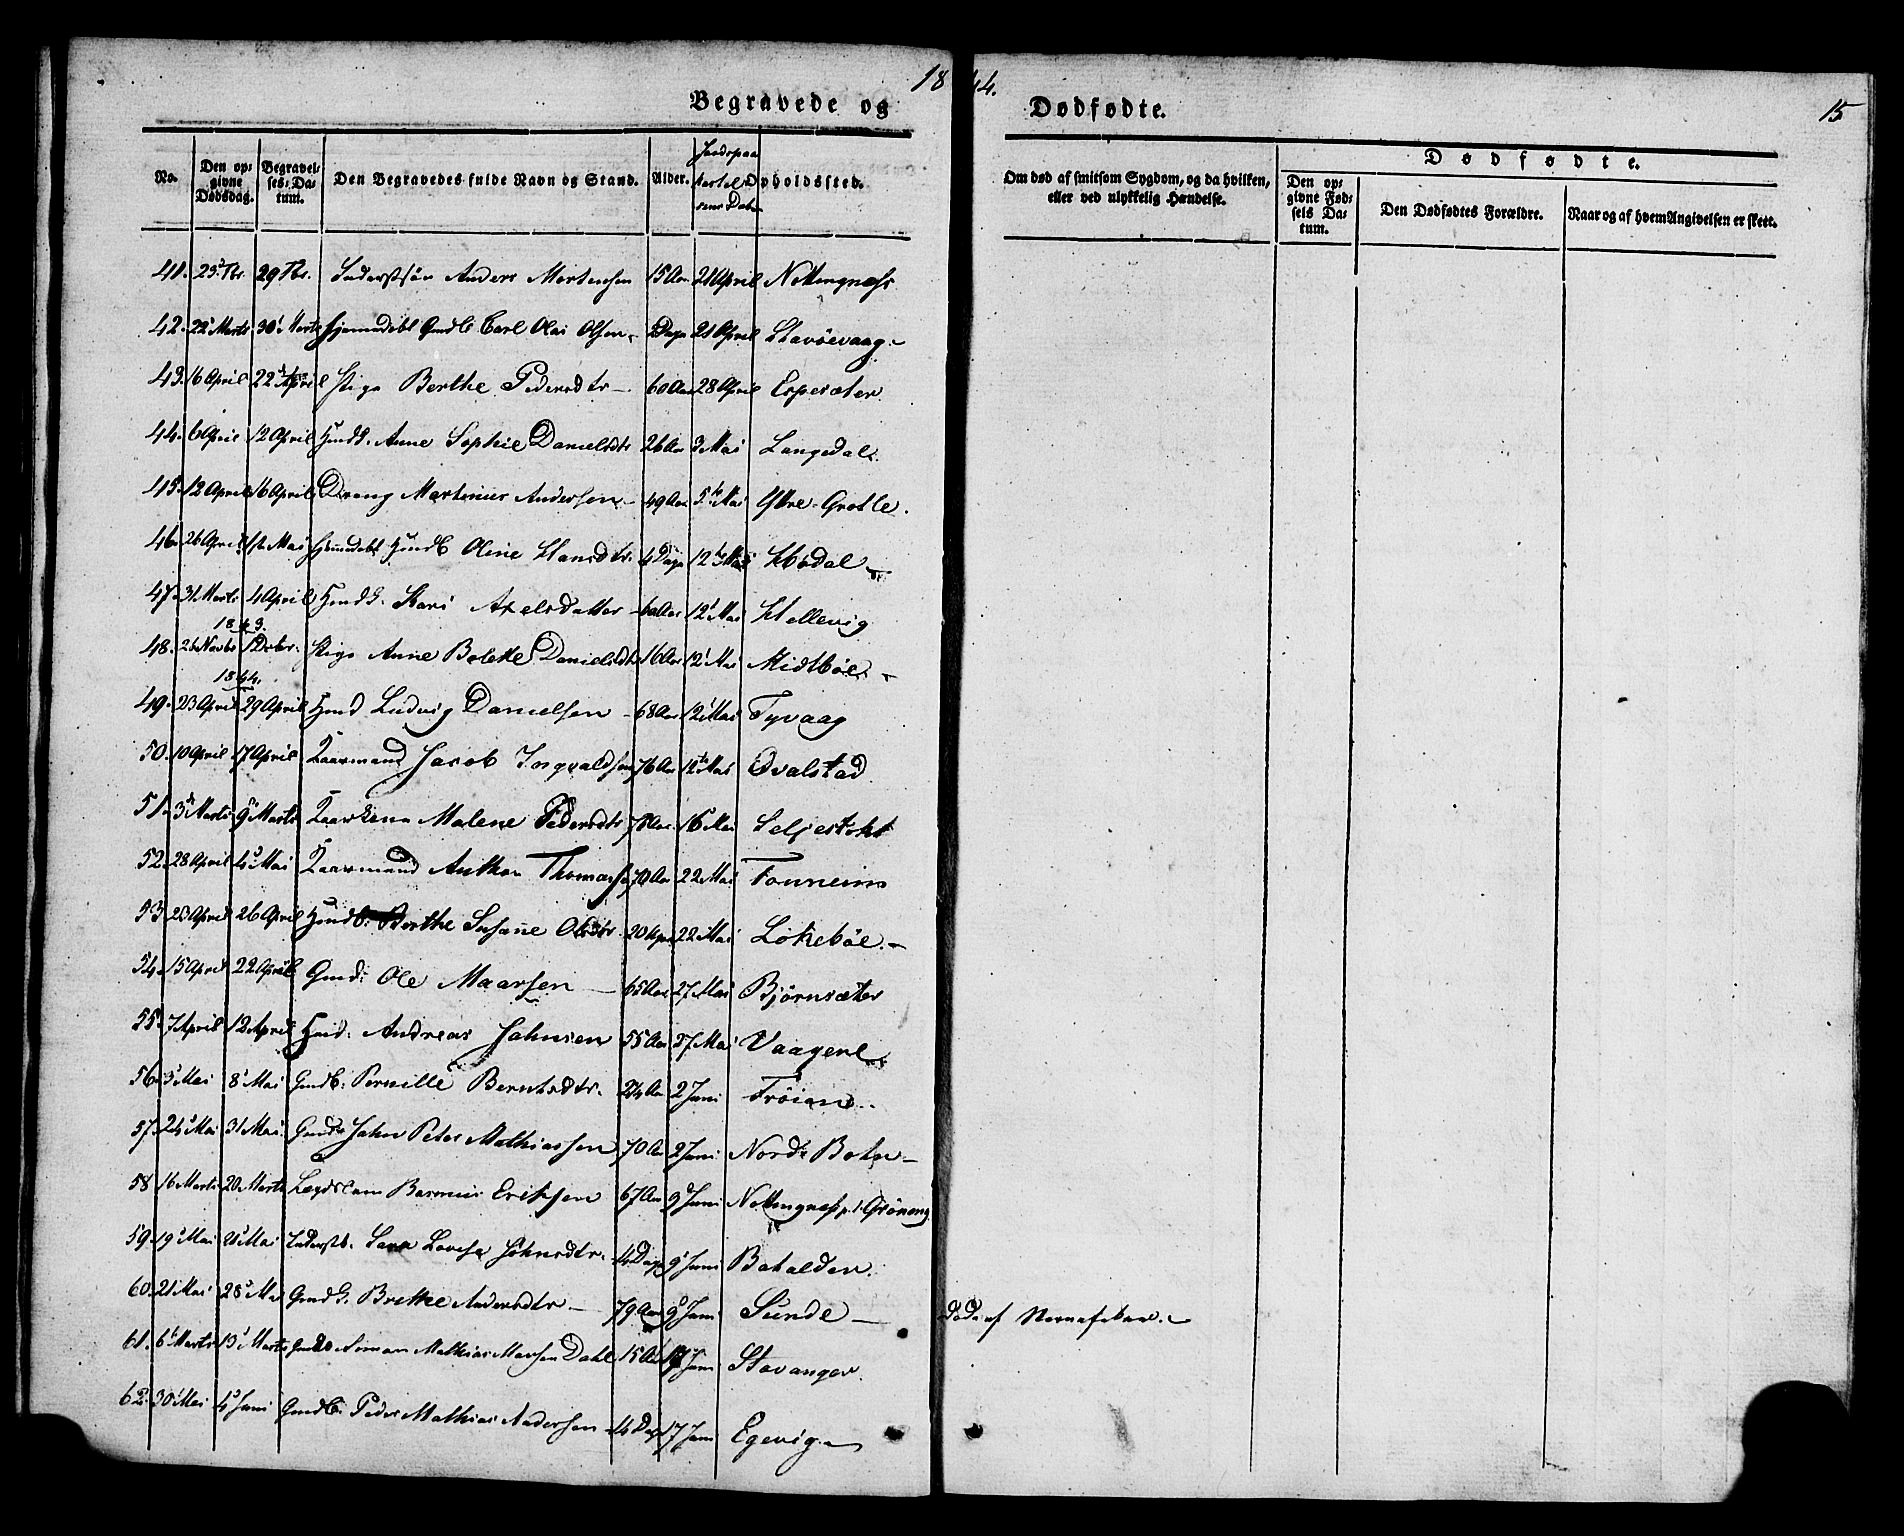 1844.
15
Begravede og Dødfødte.
No. Den opgivne Dødsdag. Begravelses-Datum. Den Begravedes fulde Navn og Stand. Alder. Jordspaakastelsens Dato Opholdssted. Om død af smitsom Sygdom, og da hvilken, eller ved ulykkelig Hændelse. Dødfødte. Den opgivne Fødsels Datum. Den Dødfødtes Forældre. Naar og af hvem Angivelsen er skeet.
41. 29 Anders Mortensen 15 Aar 21 April
42. 22 Marts 30 Marts Carl Olai Olsen. 2 Dage 21 April Stavøevaag.
43. 16 April 22 April Pige Berthe Pedersdtr 60 Aar 28 April Espesæter
44. 6 April 12 April Anne Sophie Danielsdtr 26 Aar 3 Mai Langedal.
45. 12 April 16 April Dreng Martinus Andersen 49 Aar 5te Mai Ytre-Grotle.
46. 26 April 1ste Mai Oline Hansdtr. 4 Dage 12te Mai Hødal
47. 31 Marts 4 April Kari Axelsdatter 60 Aar 12 Mai Hellevig
1843.
48. 26 Novbr 1 Decbr. Pige Anne Bolette Danielsdtr 16 Aar 12 Mai Midtbøe.
1844.
49. 23 April 29 April Huusmd Ludvig Danielsen 68 Aar 12 Mai Tyvaag
50. 10 April 17 April Kaarmand Jacob Ingvaldsen 76 Aar 12te Mai Qvalstad
51. 3de Marts 9 Marts Kaarkona Malene Pedersdtr 78 Aar 16 Mai Seljestokt
52. 28 April 4 Mai Kaarmand Anthon Thomassen 70 Aar 22 Mai Fonneim
53. 23 April 26 April Berthe Susane Olsdtr. 20 22 Mai Løkebøe.
54. 15 April 22 April Gmd: Ole Maarsen 65 Aar 27 Mai Bjørnsæter
55. 7 April 12 April Hmd: Andreas Johnsen 55 Aar 27 Mai Vaagene
56. 3 Mai 8 Mai Gmdb: Pernille Berntsdtr. 24 Aar 2 Juni Frøien
57. 24 Mai 31 Mai. Gmd: John Peter Mathiassen 70 Aar 2 Juni Nordr Botn
58 16 Marts 20 Marts Lægdslem Rasmus Eriksen 67 Aar 9 Juni
59. 19 Mai 26 Mai Inderstb. Sara Lovise Johnsdtr. 14 Dage 9 Juni Batalden.
60. 21 Mai 28 Mai Gmd. Brithe Andersdtr 79 Aar 9 Juni Sunde Døde af Nervefeber.
61. 6te Marts 13 Marts Mathias Dahl. 15 Aar 17 Juni Stavanger.
62. 30 Mai 4 Juni Gmdb: Peder Mathias Andersen 4 Dage 17 Juni Egevig.